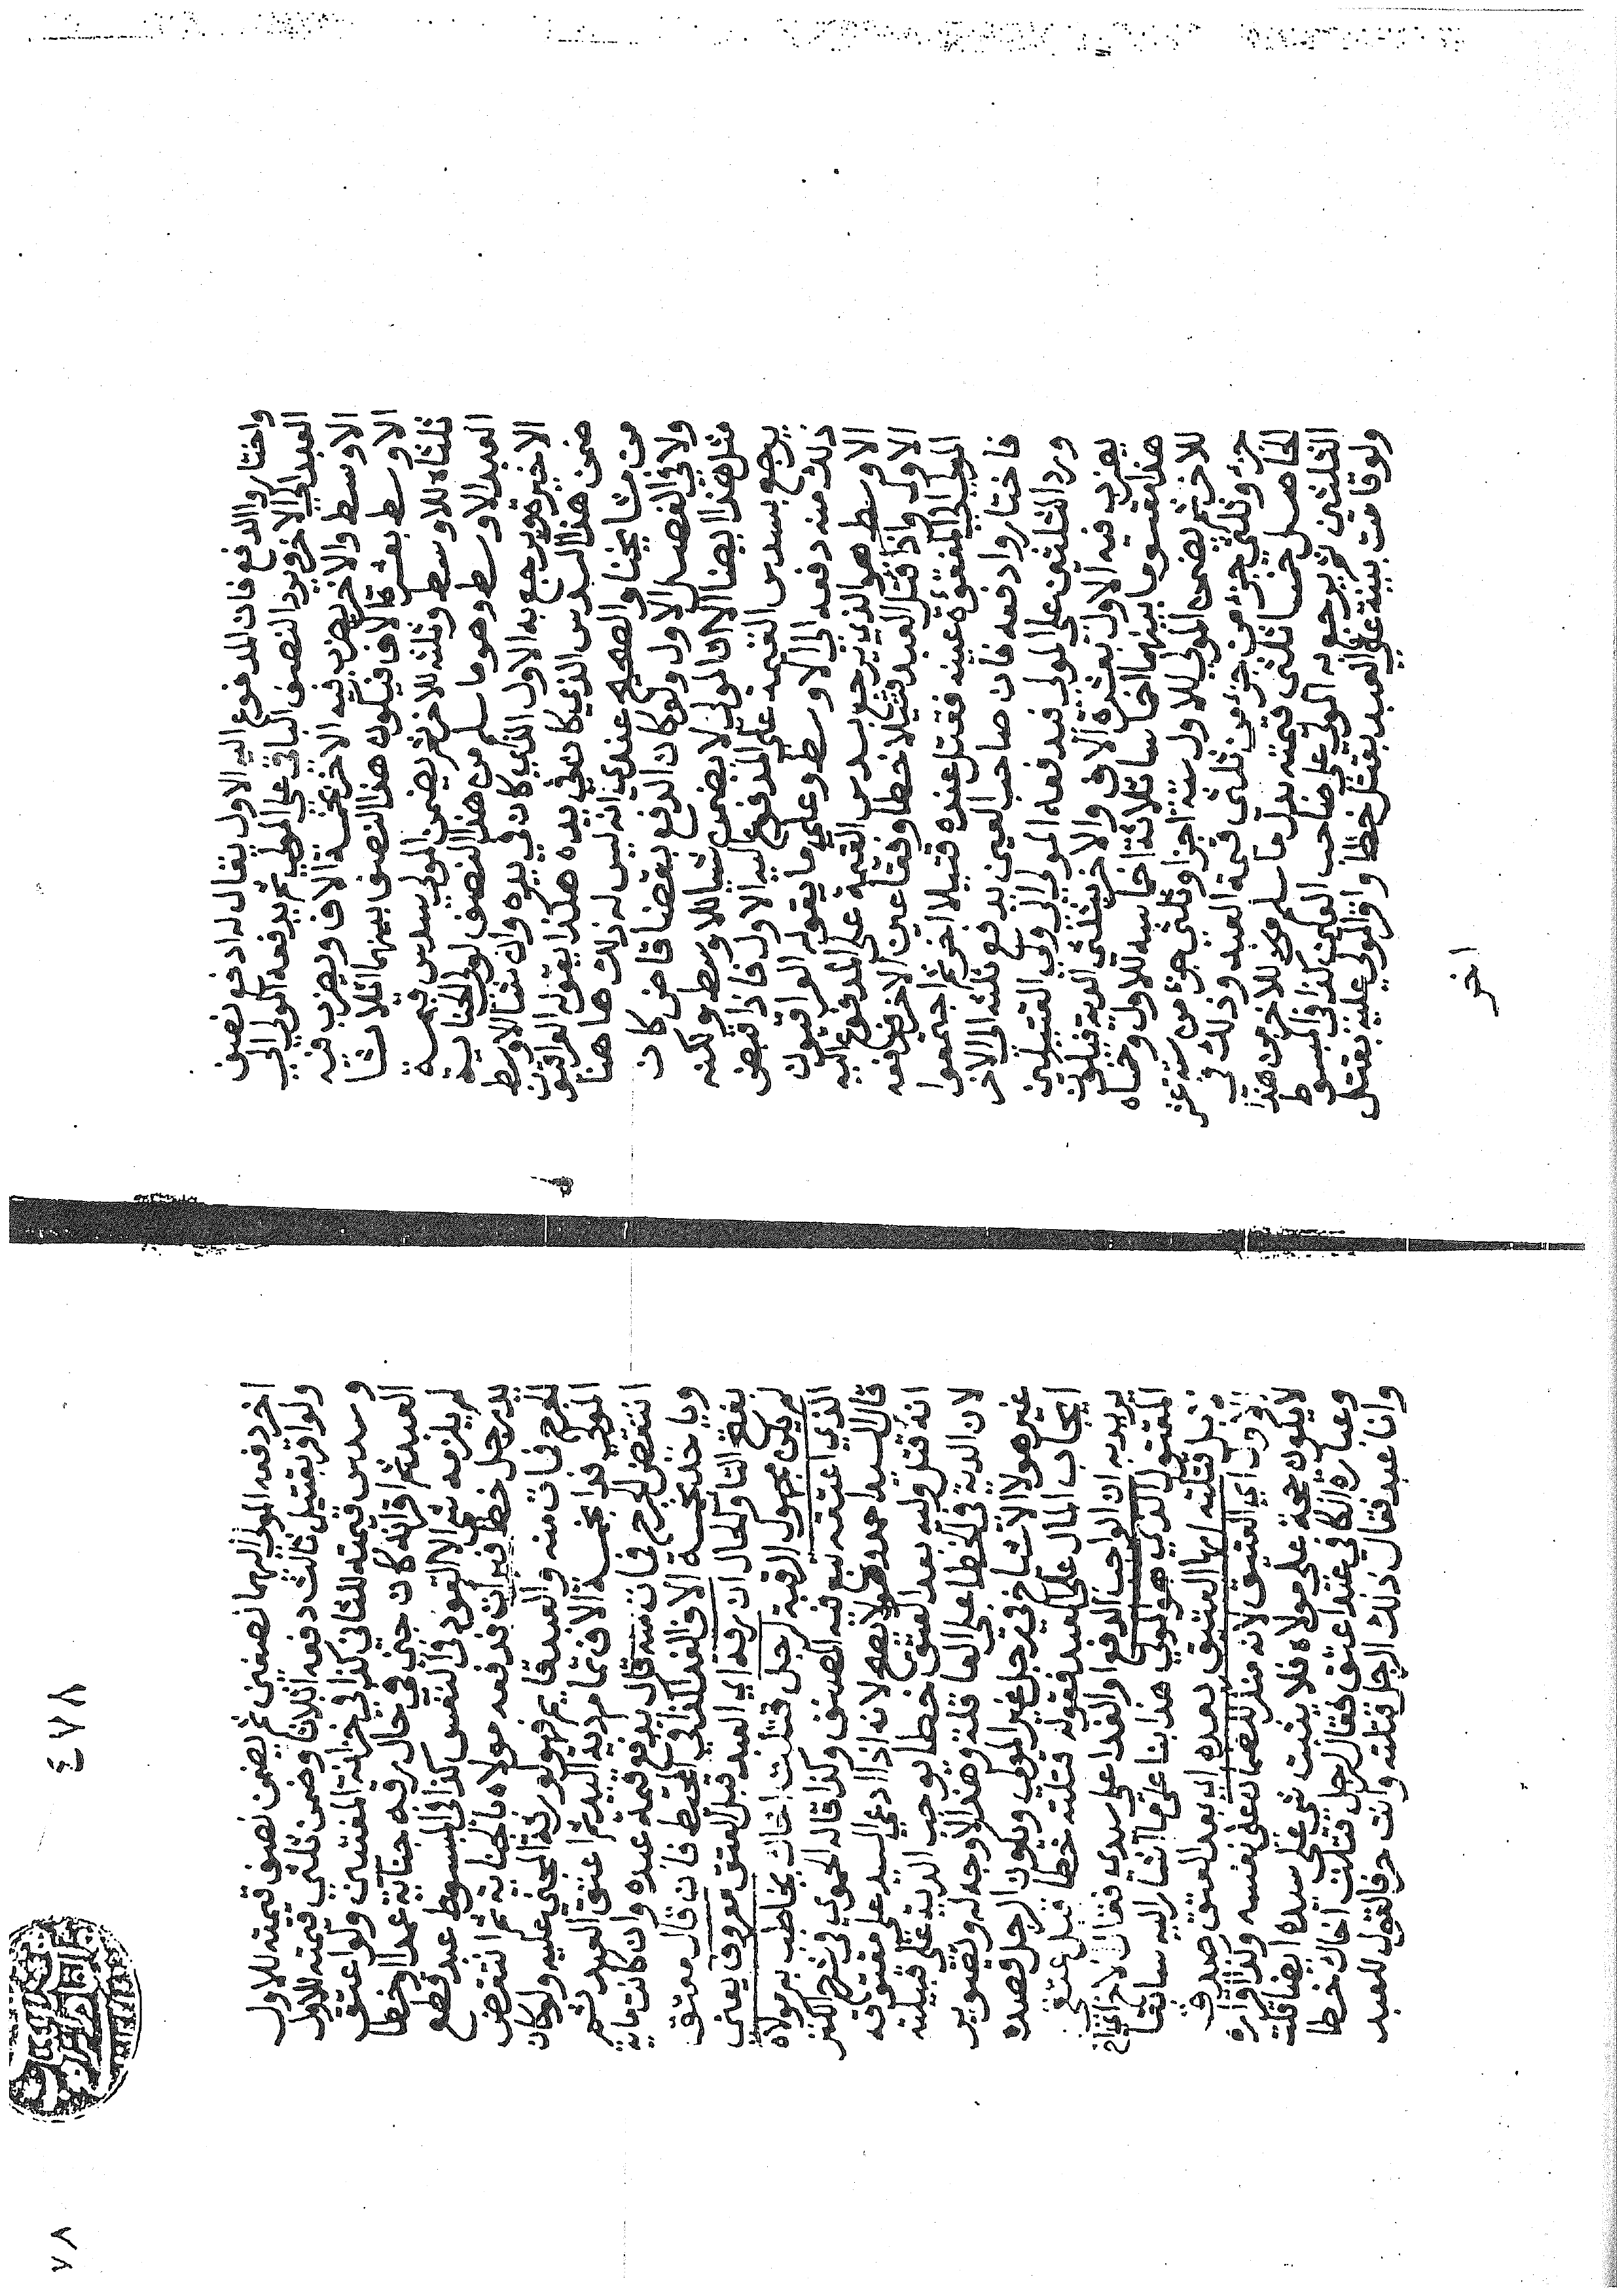 واختار والدفع فان المدفوع اليه الاول يقال له ادفع نصف
العبد الي الاخر ويرد النصف الباقي علي المولي ثم يدفعه المولي الي
الاوسط والاخر يضرب فيه الاخر بخمسة الاف ويضرب فيه
الاوسط بعشرة الاف فيكون هذا النصف بينهما اثلاثا
ثلثاه للاوسط وثلثه للاخر ثم يضمن المولي سدس قيمة
العبد الاوسط وهو ما سلم من هذا النصف لولي الجناية
الاخيرة ويرجع به الاول الذي كان في يده وان شا الاوسط
ضمن هذا السدس الذي كان في يده هكذا يقوله العراقيون
من مشايخنا والصحيح عندي انه ليس له ذلك هاهنا
ولا في الفصل الاول ولو كان الدفع بقضا قاض كان
مثل هذا ايضا الا ان المولي لا يضمن شيا للاوسط ولكنه
يرجع بسدس القيمه علي المدفوع اليه الاول فاذا قبض
ذلك منه دفعه الي الاوسط وعلي ما يقوله العراقيون
الاوسط هو الذي يرجع بسدس القيمة علي المدفوع اليه
الاول واذا قتل العبد قتيلا خطا وفقا عين الاخر فدفعه
المولي الي المفقوة عينه فقتل عنده قتيلا اخر ثم اجتمعوا
فاختاروا دفعه فان صاحب العين يدفع ثلثه الي الاخر
ويرد الثلثين علي المولي فيدفعه المولي الي ولي القتيلين
يضرب فيه الاول بعشرة الاف والاخر بثلثي الدية فيكون
هذا مقسوما بينهما اخماسا ثلاثة اخماسه للاول وخمساه
للاخر ثم يضمن المولي للاول ستة اجزا وثلثي جزء من ستة عشر
جزء وثلثي جزء من ثلثي قيمة العبد وذلك في
الحاصل خمسا ثلثي قيمته بدل ما سلم للاخر من هذا
الثلثين ثم يرجع به المولي علي صاحب العين كذا في المبسوط
ولو قامت بينة علي العبد بقتل خطا واقر المولي عليه بقتل
اخر
اخر دفعه المولي اليهما نصفين ثم يضمن نصف قيمته للاول
ولو اقر بقتيل ثالث دفعه اثلاثا وضمن ثلثي قيمته للاول
وسدس قيمته للثاني كذا في خزانة المفتين ولو اعتق
العبد ثم اقر انه كان جني في حال رقه جناية عمدا او خطا
لم يلزمه شي الا القود في النفس كذا في المبسوط عبد قطع
يد رجل خطا فبرات فدفعه مولاه بالجناية ثم انتقض
الجرح فمات منه والعبد قايم فهو لورثة المجني عليه ولو كان
المولي فداه بخمسة الاف تمام دية اليد ثم اعتق العبد ثم
انتقض الجرح فمات منه قال يدفع قيمة عبده وان كانت مايه
وياخذ خمسة الاف الفدا كذا في المحيط فان قال معتق
بفتح التا والحال ان رقه اي العبد قبل العتق معروف يعني
لم يكن مجهول الرقبة لرجل قتلت اخاك يخاطب به مولاه
الذي اعتقه بعرفه المصنف وكذا قاله الحموي في شرح الكنز
قال السيد احمد هو لا يصح لانه اذا ادعي السيد علي معتوقه
انه قتل وليه بعد العتق خطا يوجب الدية علي قبيلته
لان الدية في الخطا علي العاقلة وهذا لا وجه له وتصوير
غير هولا الاشياخ في رجل غير المولي ويكون الرجل قصده
ايجاب المال علي العبد فقوله قتلته خطا قبل عتقي
يريد به ان الواجب الدفع او الفدا علي سيدي فقال الاخ اي اخ
المقتول الذي هو المولي هذا بنا علي ما اشار اليه سابقا
بل قتلته ايها العتيق بعده اي بعد العتق صدق
الاول اي العتيق لانه منكر للضمان علي نفسه وكذا اقراره
لا يكون حجة علي مولاه فلا يثبت شي علي سيده ايضا قلت
وعبارة الكافي عبد اعتق فقال لرجل قتلت اخاك خطا
وانا عبد فقال ذلك الرجل قتلته وانت حر فالقول للعبد
٤٧٨
٧٨